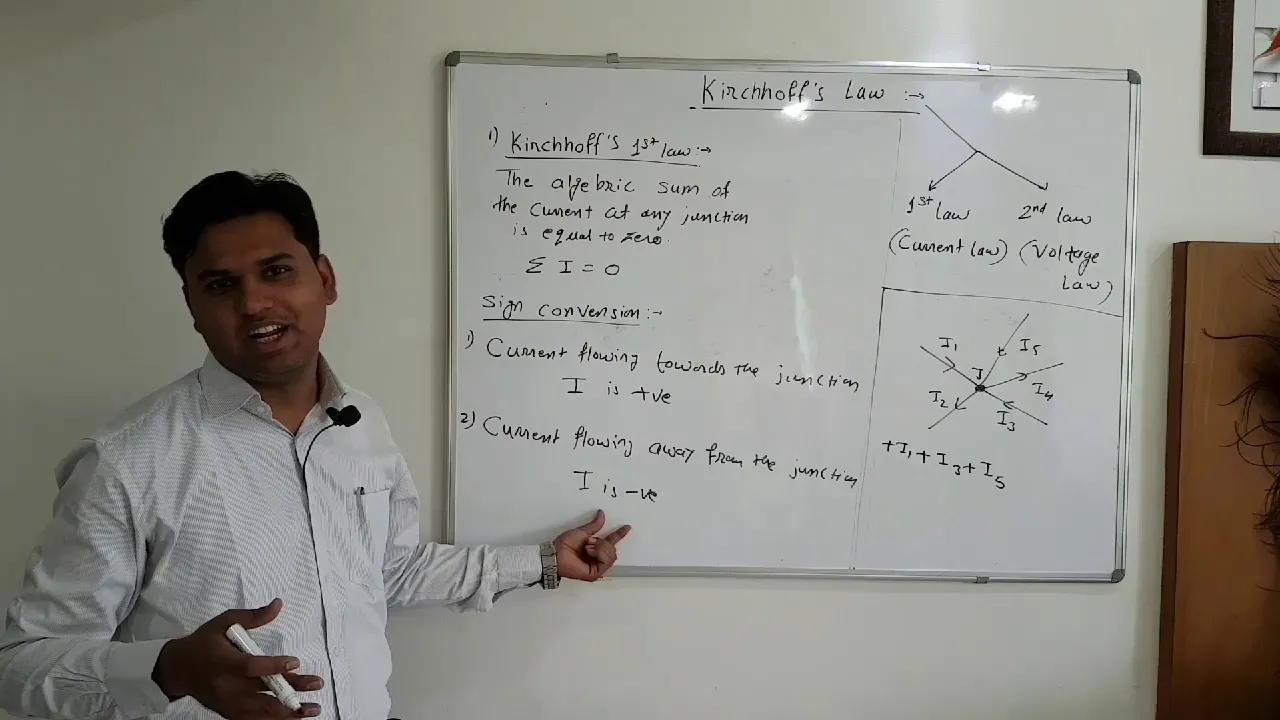 Kirchhoff's Law :→
1) Kirchhoff's 1st law :→
The algebric sum of
the current at any junction
is equal to zero.
Σ I = 0
Sign convension :→
1) Current flowing towards the junction
I is +ve
2) Current flowing away from the junction
I is -ve
1st Law
2nd law
(Current law)
(Voltage
Law)
I₁
I₅
J
I₄
I₂
I₃
+I₁ + I₃ + I₅